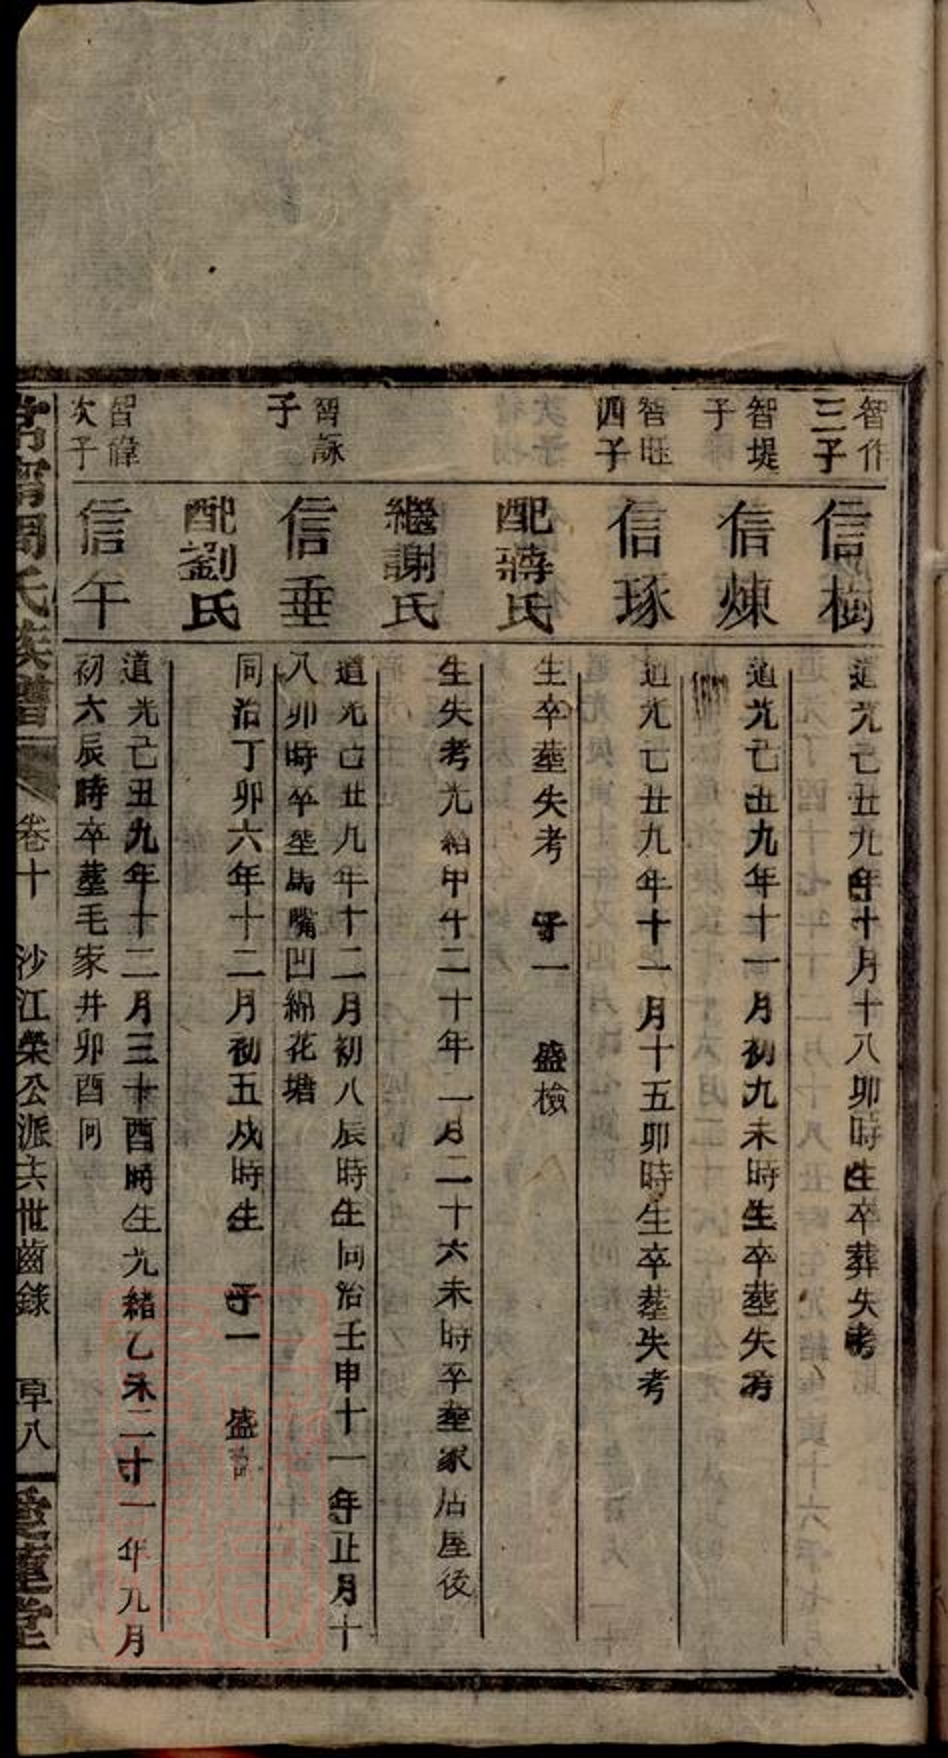 智作
三子
信樹
道光己丑九年十月十八卯時生卒葬失考
智堤
子
信煉
道光己丑九年十一月初九未時生卒塟失考
智旺
四子
信琢
道光己丑九年十一月十五卯時生卒塟失考
配蔣氏
生卒塟失考 子一 盛檢
繼謝氏
生失考光緒甲午二十年二月二十六未時卒塟家居屋後
智詠
子
信垂
道光己丑九年十二月初八辰時生同治壬申十一年正月十
八卯時卒塟馬嘴凹綿花塘
配劉氏
同治丁卯六年十二月初五戌時生 子一 盛
智偉
次子
信午
道光己丑九年十二月三十酉時生光緒乙未二十一年九月
初六辰時卒塟毛家井卯酉向
常甯周氏族譜 卷十 沙江榮公派共世齒錄 八 愛蓮堂